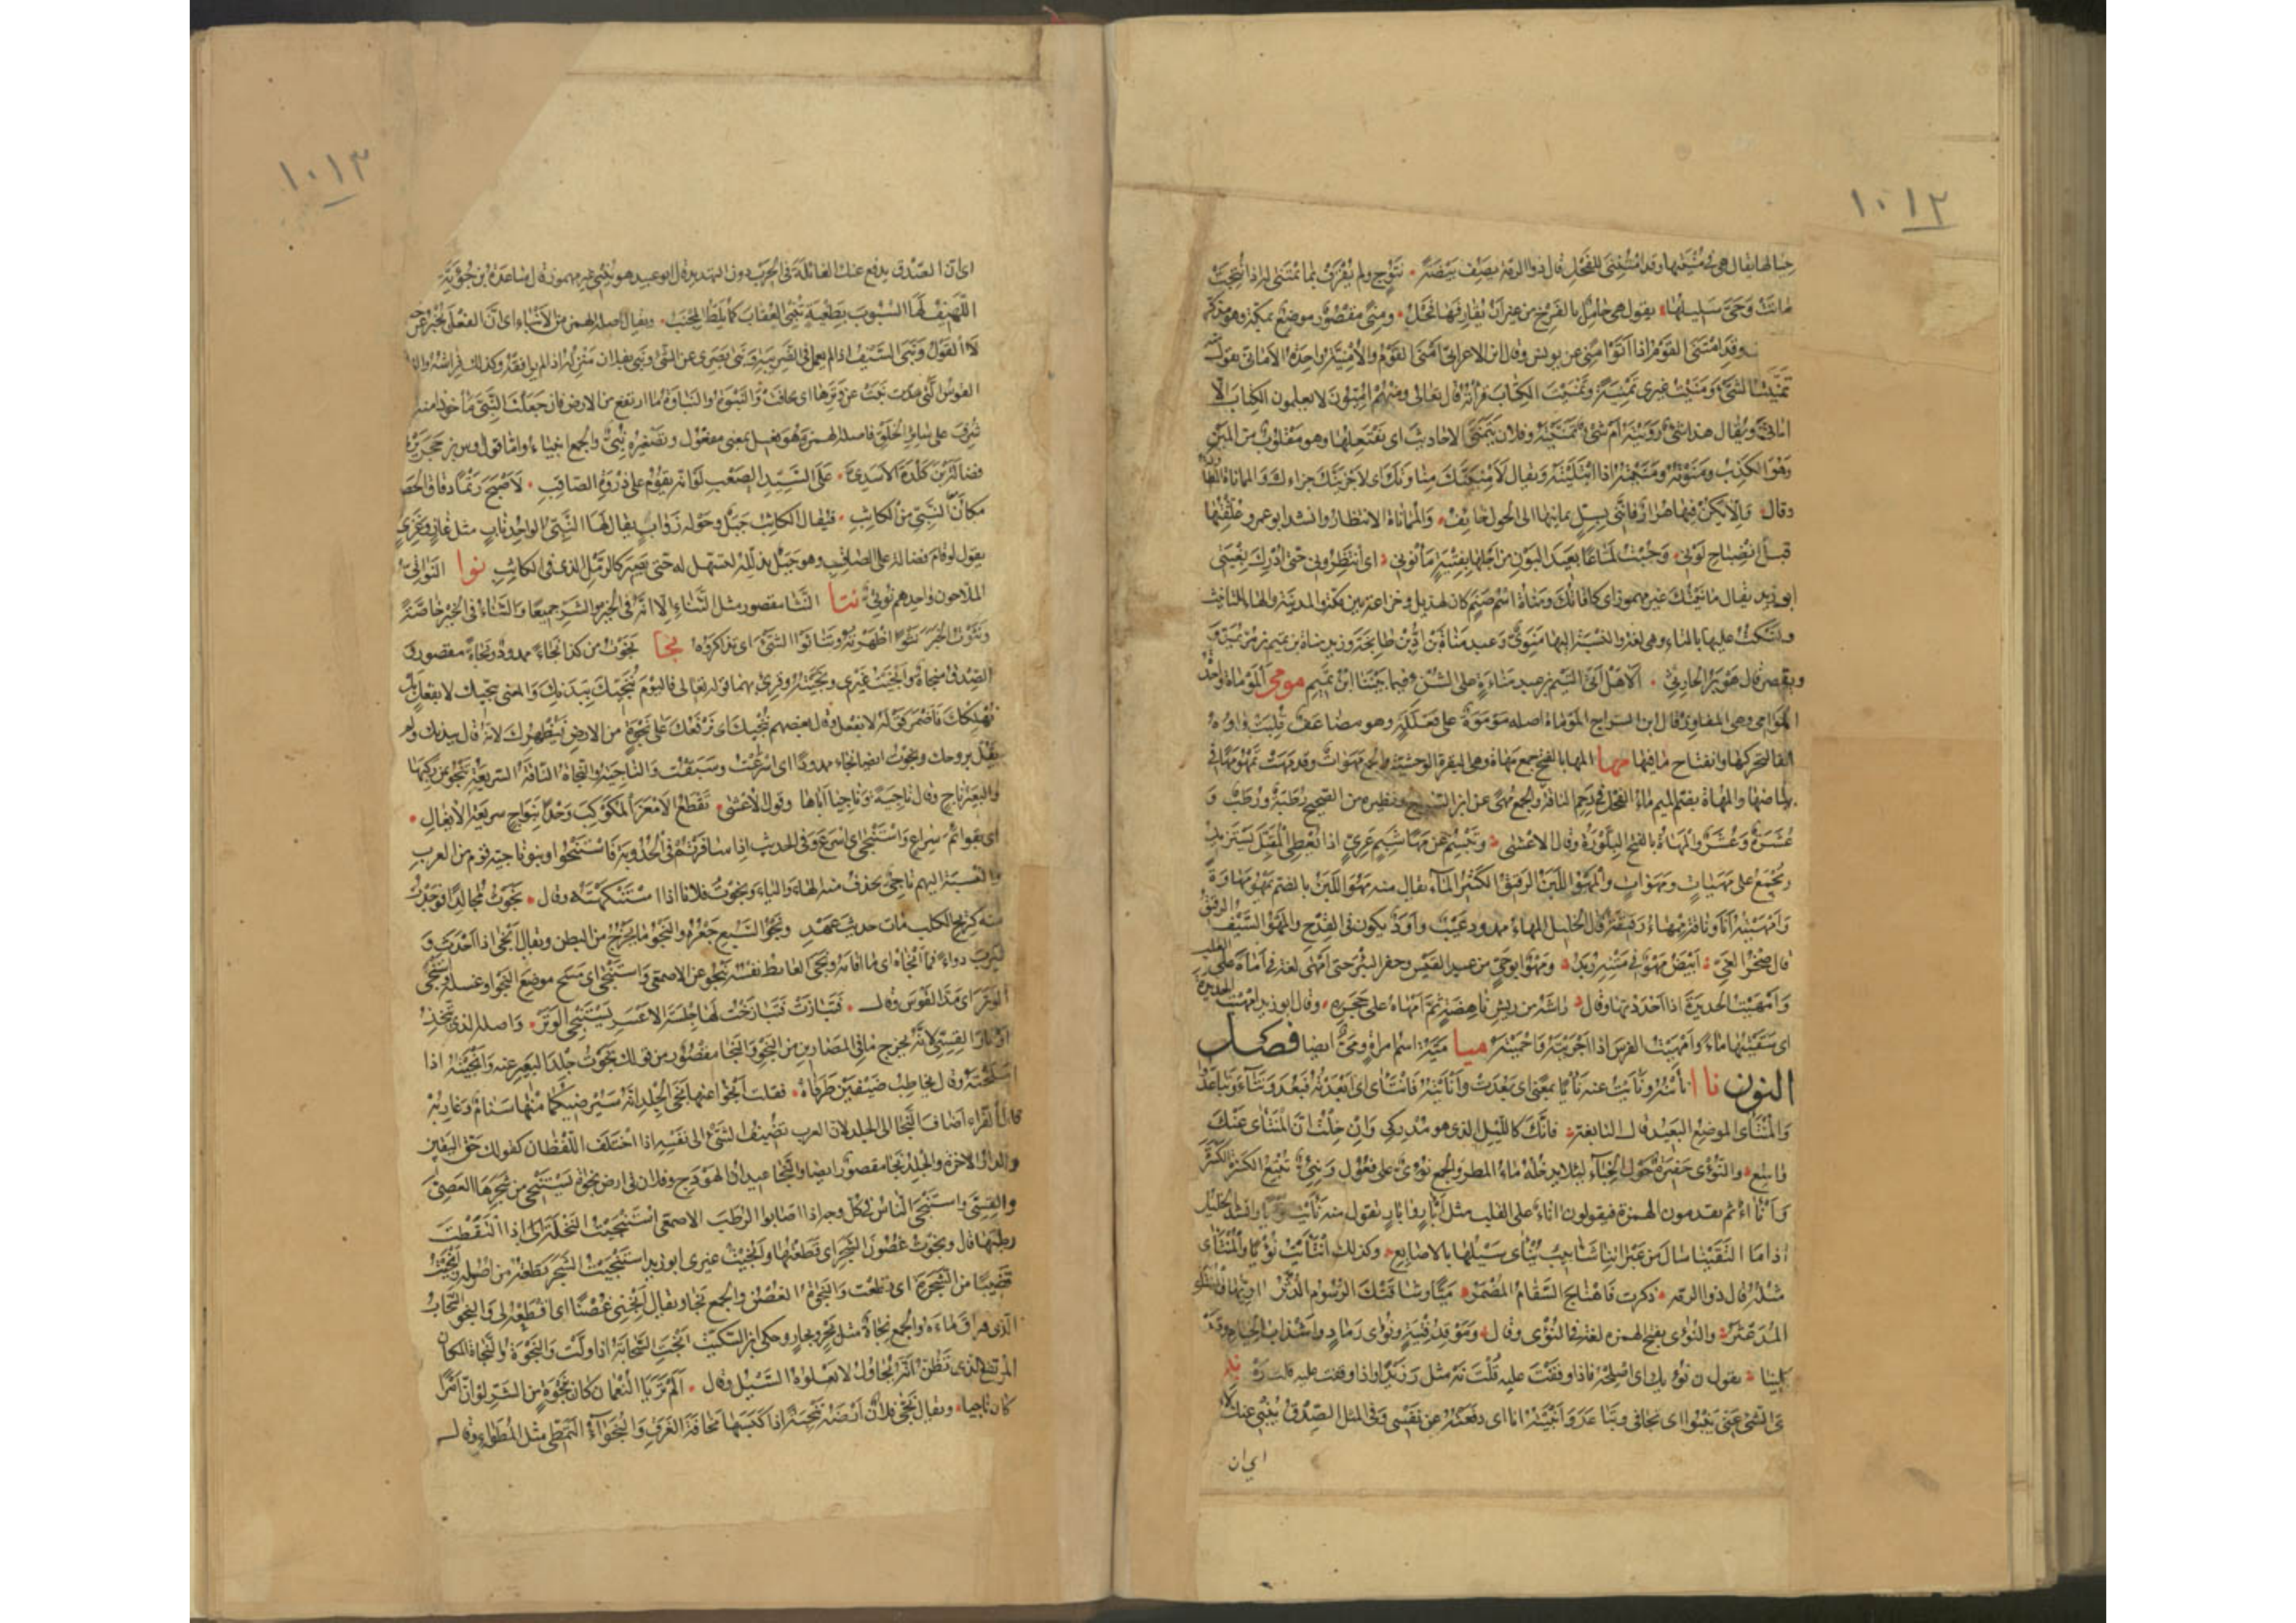 ١٠١٢
حيالها يقال هي في منيتها وقد امتنيت للفحل قال ذو الرمة يصف بيضة نتوج ولم تقرف بما يمتنى له اذا نتجت
ماتت وحي سليلها يقول هي حامل بالفرخ من غير ان يقارفها فحل ومنى مقصور موضع بمكة وهو مذكر
وقد امتنى القوم اذا اتوا منى عن يونس وقال ابن الاعرابي امنى القوم والامنية واحدة الاماني تقول منه
تمنيت الشيء ومنيت غيري تمنية وتمنيت الكتاب قرأته قال تعالى ومنهم اميون لا يعلمون الكتاب الا
اماني ويقال هذا شيء رويته ام شيء تمنيته وفلان يتمنى الاحاديث اي يفتعلها وهو مقلوب من المين
وهو الكذب ومنوته ومنيته اذا ابتليته ويقال لامنينك مناوتك اي لاجزينك جزاءك والمماناة
وقال والا يكن فيها هرار فانني بسل يمانيها الى الحول خائف والمماناة الانتظار وانشد ابو عمرو علقتها
قبل انضباح لوني وجبت لماعا بعيد البون من اجلها بفتية مانوني اي انتظروني حتى ادرك بغيتي
ابو زيد يقال مانيتك غير مهموز اي كافاتك ومناة اسم صنم كان لهذيل وخزاعة بين مكة والمدينة والهاء للتانيث
وتسكت عليها بالتاء وهي لغة والنسبة اليها منوي وعبد مناة بن اد بن طابخة وزيد مناة بن تميم بن مر يمد و
ويقصر قال هوبر الحارثي الا هل اتى التيم بن عبد مناءة على الشنء فيما بيننا ابن تميم مومى الموماة واحدة
الموامي وهي المفاوز قال ابن السراج الموماة اصله موموة على فعللة وهو مضاعف قلبت واوه
الفا لتحركها وانفتاح ما قبلها مها المها بالفتح جمع مهاة وهي البقرة الوحشية والجمع مهوات وقد مهت تمهو مها في
بياضها والمهاة بضم الميم ماء الفحل في رحم الناقة والجمع مهى عن ابن السراج ونظيره من الصحيح رطبة ورطب و
عشرة وعشر والمهاة بالفتح البلورة وقال الاعشى وتبسم عن مها شبم غري اذا تعطي المقبل يستزيد
وتجمع على مهيات ومهوات والمهو اللبن الرقيق الكثير الماء يقال منه مهو اللبن بالضم يمهو مهاوة
وامهيته انا وناقة ممهاء رقيقة قال الخليل المهاء ممدود عيب واود يكون في القدح والمهو السيف الرقيق
قال صخر الغي ابيض مهو في متنه ربد ومهو ابو حي من عبد القيس وحفر البئر حتى امهى لغة في اماه على القلب
وامهيت الحديدة اذا احددتها وقال راشه من ريش ناهضة ثم امهاه على حجره وقال ابو زيد امهيت الحديدة
اي سقيتها ماء وامهيت الفرس اذا اجريته واحميته ميا مية اسم امراة ومي ايضا فصل
النون ناا نايته ونايت عنه نايا بمعنى اي بعدت وانايته فانتاى اي ابعدته فبعد وتناءوا تباعدوا
والمنتاى الموضع البعيد قال النابغة فانك كالليل الذي هو مدركي وان خلت ان المنتاى عنك
واسع والنؤي حفرة حول الخباء لئلا يدخله ماء المطر والجمع نؤي على فعول ونئي تتبع الكسرة الكسرة
وانآء ثم يقدمون الهمزة فيقولون اناء على القلب مثل ابآر وابار تقول منه نايت نؤيا وانشد الخليل
اذا ما التقينا سال من عبراتنا شآبيب يناى سيلها بالاصابع وكذلك انتايت نؤيا والمنتاى
مثله قال ذو الرمة ذكرت فاهتاج السقام المضمر ميا وشاقتك الرسوم الدثر اريها والمنتاى
المدعثر والنؤى بفتح الهمزة لغة في النؤي وقال وموقد فتية ونؤى رماد واشذاب الخيام وقد
بلينا تقول ن نؤيك اي اصلحه فاذا وقفت عليه قلت نه مثل ر زيدا واذا وقفت عليه قلت ره
الشيء عني ينبو اي تجافى وتباعد وانبيته انا اي دفعته عن نفسي وفي المثل الصدق ينبي عنك لا
اي ان
١٠١٣
اي ان الصدق يدفع عنك الغائلة في الحرب دون التهديد قال ابو عبيد هو ينبي غير مهموز قال ساعدة بن جؤية
اللهيف لها السبوب بطغية تنبي العقاب كما يلط المجنب ويقال اصله الهمز من الانباء اي ان الفعل يخبر عن
لا القول ونبا السيف اذا لم يعمل في الضريبة ونبا بصري عن الشيء ونبا بفلان منزله اذا لم يوافقه وكذلك فراشه
القوس التي نبت عن وترها اي تجافت والنبوة والنباوة ما ارتفع من الارض فان جعلت النبي ماخوذا منه
شرف على سائر الخلق فاصله غير الهمز وهو فعيل بمعنى مفعول وتصغيره نبي والجمع انبياء واما قول اوس بن حجر يرثي
فضالة بن كلدة الاسدي على السيد الصعب لو انه يقوم على ذروة الصاقب لاصبح رتما دقاق الحصى
مكان النبي من الكاثب فيقال الكاثب جبل وحوله رواب يقال لها النبي الواحد ناب مثل غاز وغزي
يقول لو قام فضالة على الصاقب وهو جبل يذلله لتسهل له حتى يصير كالرمل الذي في الكاثب نوا النواتي
الملاحون واحدهم نوتي نثا النثا مقصور مثل الثناء الا انه في الخير والشر جميعا والثناء في الخير خاصة
ونثوت الخبر نثوا اظهرته وتناثوا الشيء اي تذاكروه نجا نجوت من كذا نجاء ممدود ونجاة مقصور و
الصدق منجاة وانجيت غيري ونجيته وقرئ بهما قوله تعالى فاليوم ننجيك ببدنك والمعنى ننجيك لا بفعل بل
نهلكك فاضمر قوله لا بفعل وقال بعضهم ننجيك اي نرفعك على نجوة من الارض فنظهرك لانه قال ببدنك ولم
يقل بروحك ونجوت ايضا نجاء ممدودا اي اسرعت وسبقت والناجية والنجاة الناقة السريعة تنجو بمن ركبها
والبعير ناج وقال ناجية وناجيا اباها وقول الاعشى تقطع الامعز المكوكب وخدا بنواج سريعة الايغال
اي بقوائم سراع واستنجى اي اسرع وفي الحديث اذا سافرتم في الجدوبة فاستنجوا وبنو ناجية قوم من العرب
والنسبة اليهم ناجي بحذف منه الهاء والياء ونجوت فلانا اذا استنكهته وقال نجوت مجالدا فوجدت
منه كريح الكلب مات حديث عهد ونجو السبع جعره والنجو ما يخرج من البطن ويقال انجى اذا احدث و
شرب دواء فما انجاه اي ما اقامه ونجا الغائط نفسه ينجو عن الاصمعي واستنجى اي مسح موضع النجو او غسله واستنجى
الوتر اي مد القوس وقال فتبازت فتبازخت لها جلسة الاعسر يستنجي الوتر واصله الذي يتخذ
اوتار القسي لانه يخرج ما في المصارين من النجو والنجا مقصور من قولك نجوت جلد البعير عنه وانجيته اذا
سلخته وقال يخاطب ضيفين طرقاه فقلت انجوا عنها نجا الجلد انه سيرضيكما منها سنام وغاربه
قال الفراء اضاف النجا الى الجلد لان العرب تضيف الشيء الى نفسه اذا اختلف اللفظان كقولك حق اليقين
والدار الاخرة والجلد نجا مقصور ايضا والنجا عيدان الهودج وفلان في ارض نجاة يستنجي من شجرها العصي
والقسي واستنجى الناس في كل وجه اذا اصابوا الرطب الاصمعي استنجيت النخلة اذا التقطت
رطبها قال ونجوت غصون الشجر اي قطعتها وانجيت غيري ابو زيد استنجيت الشجر قطعته من اصوله وانجيت
قضيبا من الشجرة اي قطعت والنجاة الغصن والجمع نجا ويقال انجني غصنا اي اقطعه لي والنجو السحاب
الذي هراق ماءه والجمع نجاء مثل بحر وبحار وحكى ابن السكيت انجت السحابة اذا ولت والنجوة والنجاة المكان
المرتفع الذي تظن انه نجاؤك لا يعلوه السيل وقال الم تريا النعمان كان بنجوة من الشر لو ان امرا
كان ناجيا ويقال نجى فلان ارضه تنجية اذا كبسها مخافة الغرق والنجواء التمطي مثل المطواء وقال